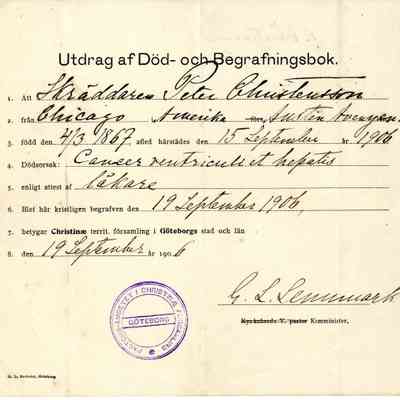 Utdrag af Död- och Begrafningsbok.
1. Att Skräddaren Peter Christensson
2. från Chicago Amerika Austin Avenyen.
3. född den 4/3 1867, afled härstädes den 15 September år 1906
4. Dödsorsak: Cancer ventriculi et hepatis
5. enligt attest af läkare
6. Blef här kristligen begrafven den 19 September 1906,
7. betygar Christinæ territ. församling i Göteborgs stad och län
8. den 19 September år 1906
G. L. Lennmark
Kyrkoherde. V. pastor Komminister,
PASTORS-EMBETET I CHRISTINÆ FÖRSAMLING
GÖTEBORG